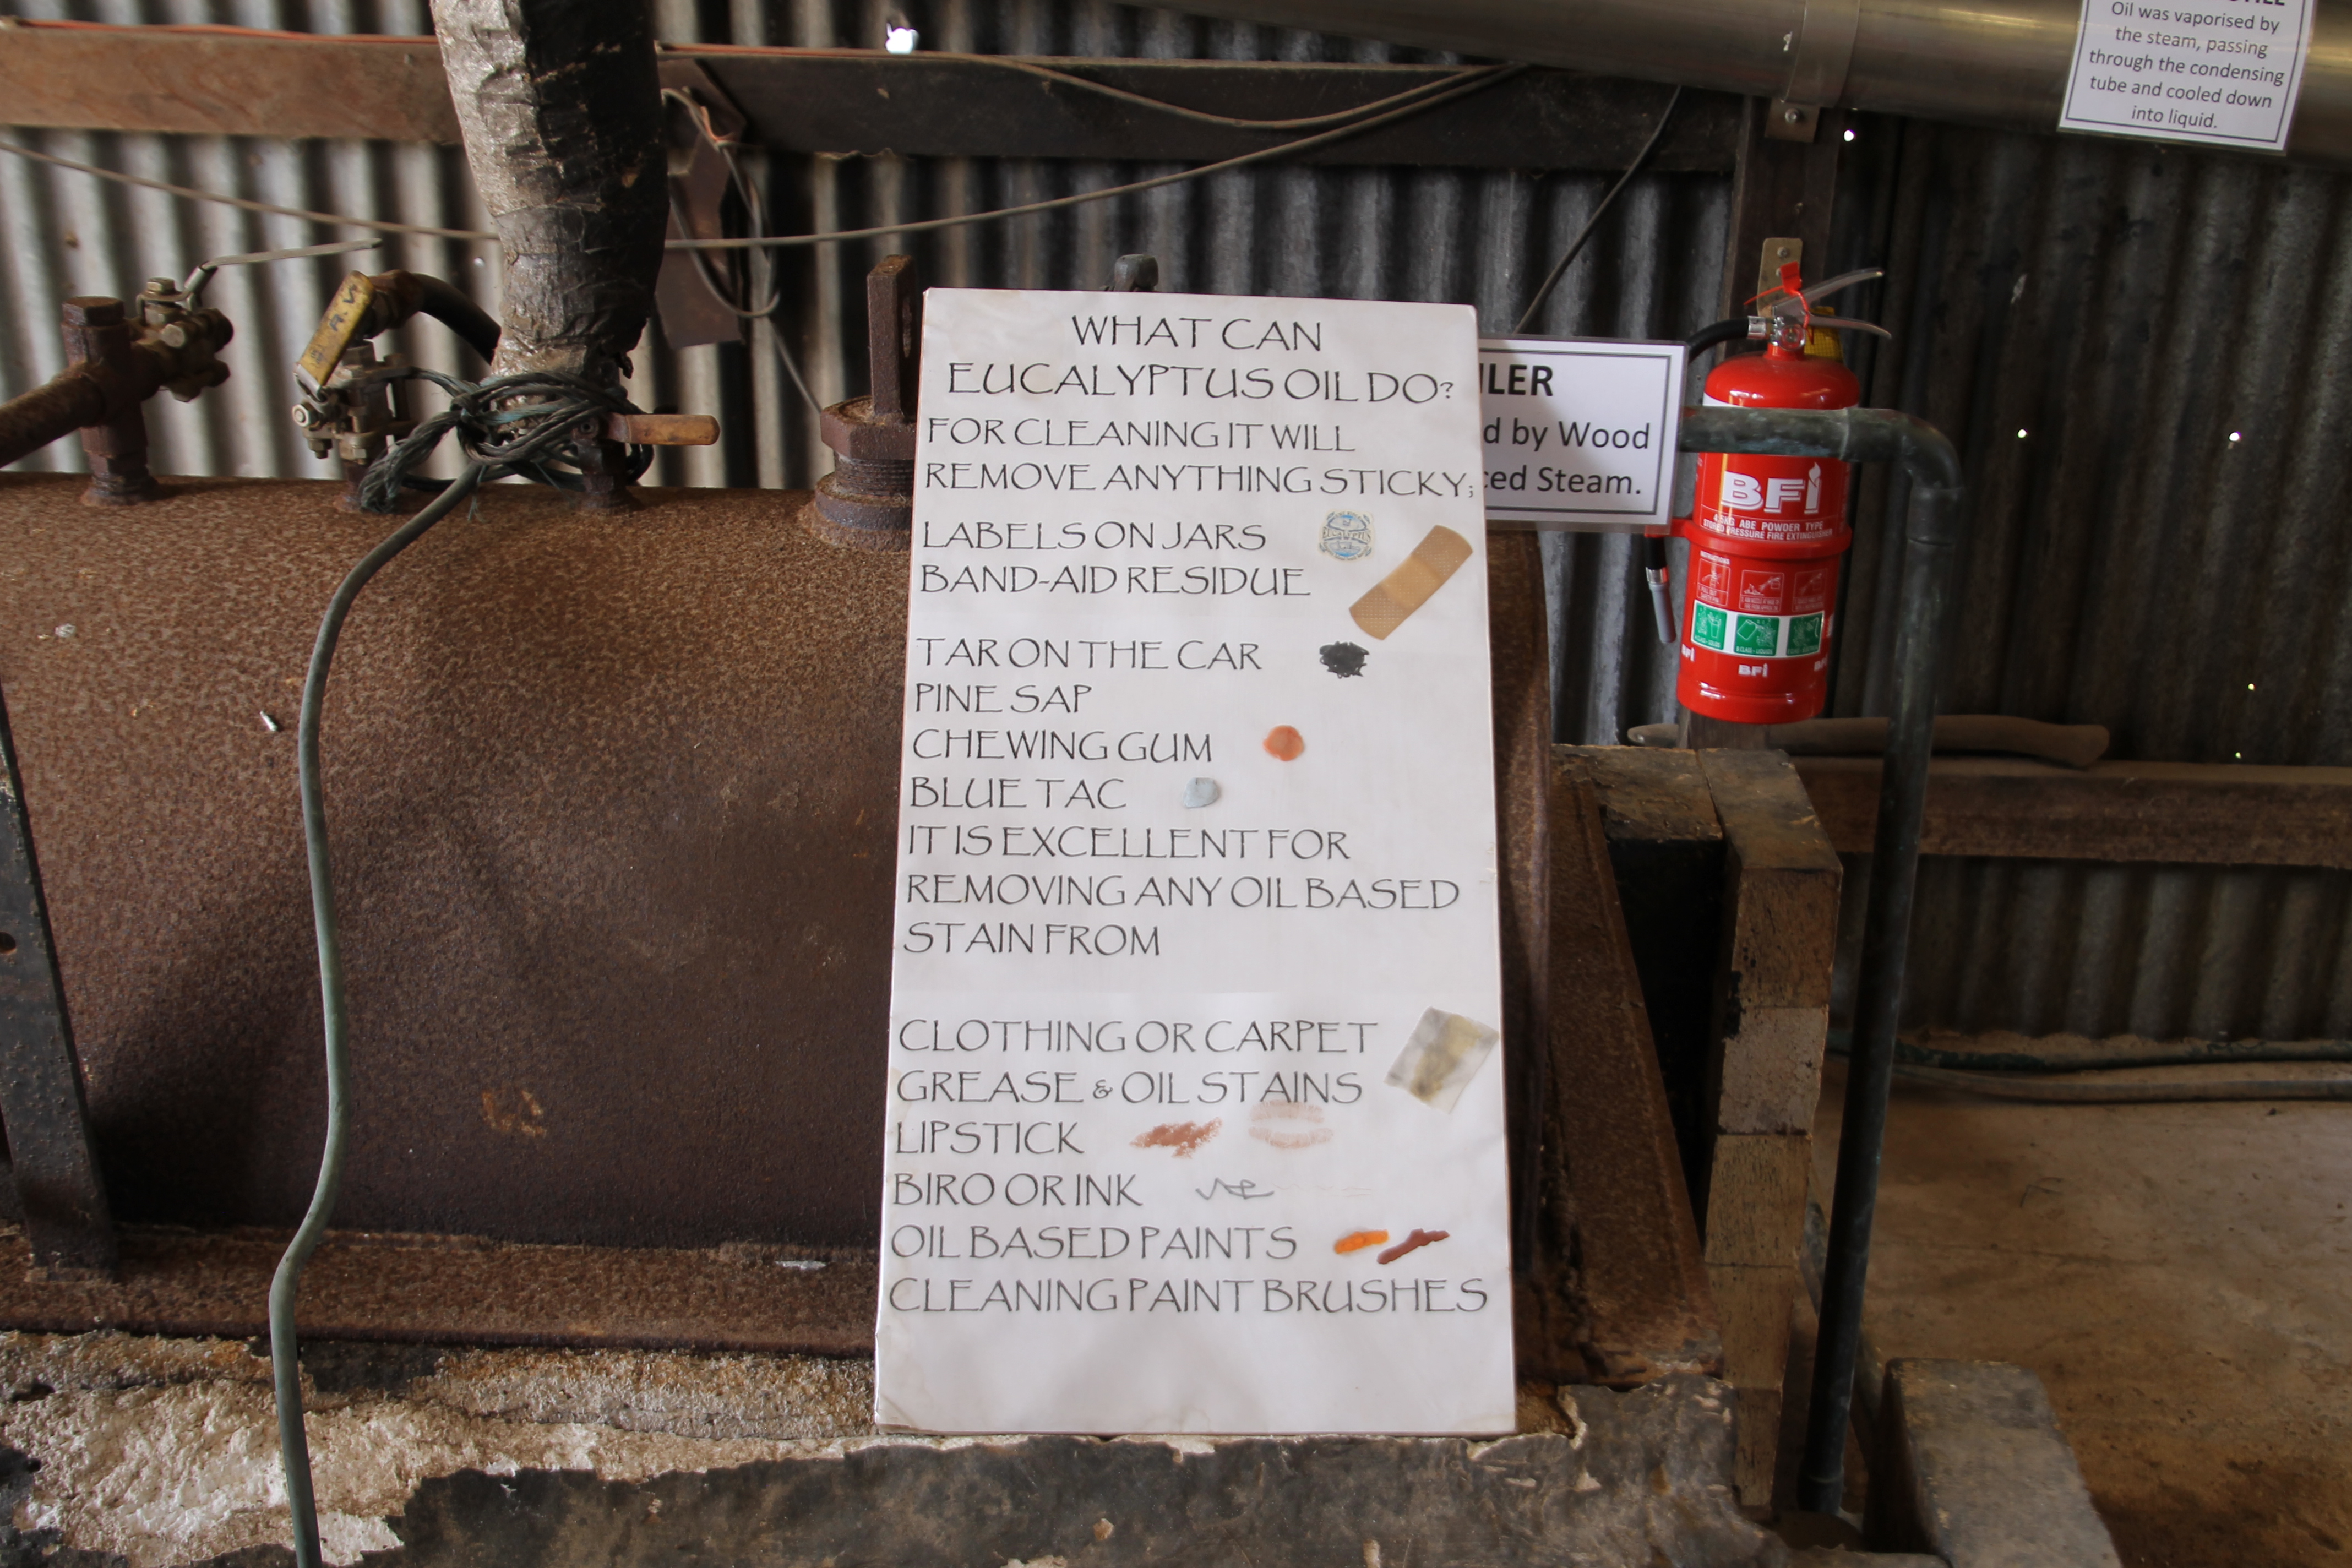 WHAT CAN
EUCALYPTUS OIL DO?
FOR CLEANING IT WILL
REMOVE ANYTHING STICKY;
LABELS ON JARS
BAND-AID RESIDUE
TAR ON THE CAR
PINE SAP
CHEWING GUM
BLUE TAC
IT IS EXCELLENT FOR
REMOVING ANY OIL BASED
STAIN FROM
CLOTHING OR CARPET
GREASE & OIL STAINS
LIPSTICK
BIRO OR INK
OIL BASED PAINTS
CLEANING PAINT BRUSHES
Oil was vaporised by
the steam, passing
through the condensing
tube and cooled down
into liquid.
by Wood
Steam.
BFI
ABE POWDER TYPE
STORED PRESSURE FIRE EXTINGUISHER
INSTRUCTIONS
BFI